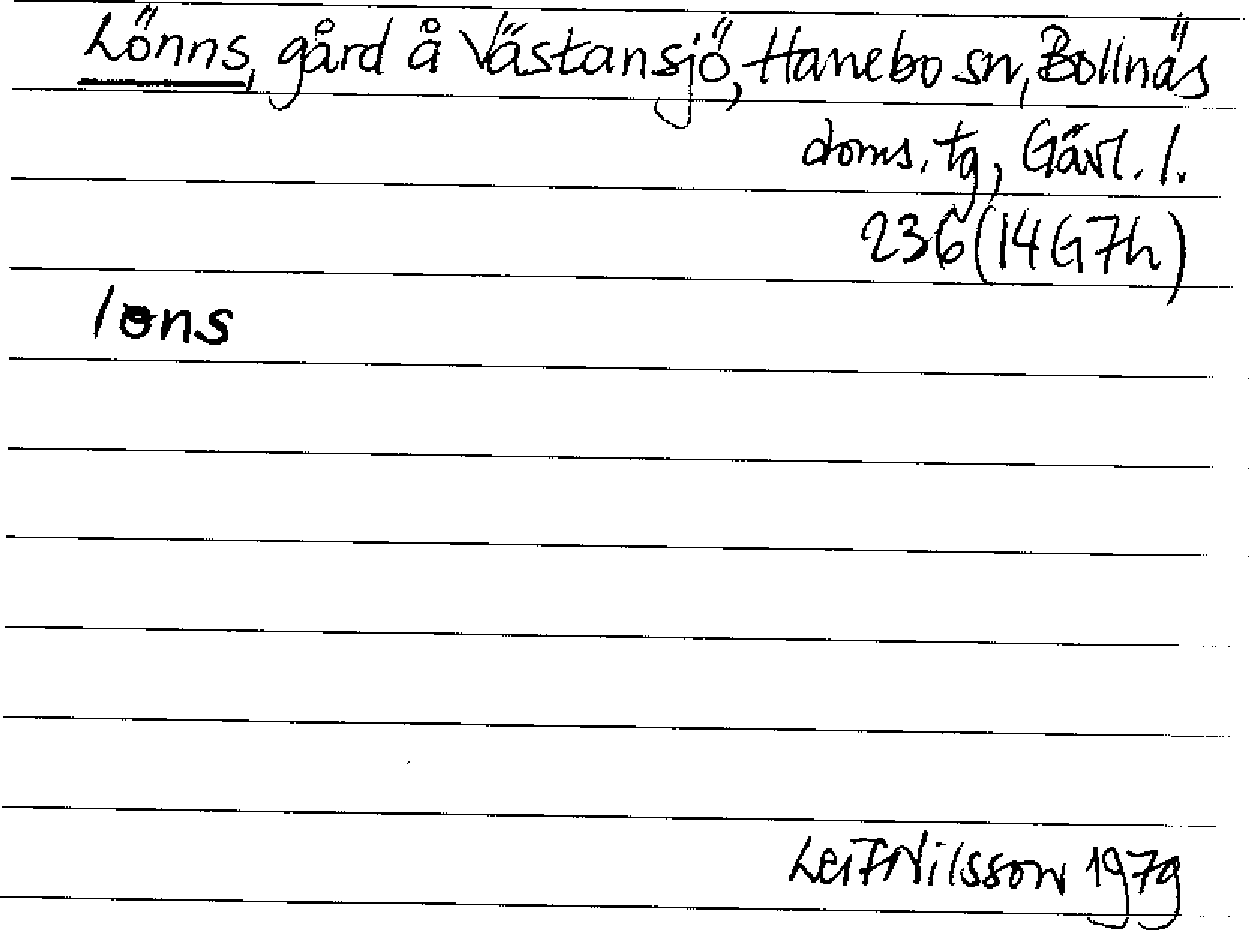 Lönns, gård å Västansjö, Hanebo sn, Bollnäs
doms. tg, Gävl. l.
236 (14G7h)
lɵns
Leif Nilsson 1979